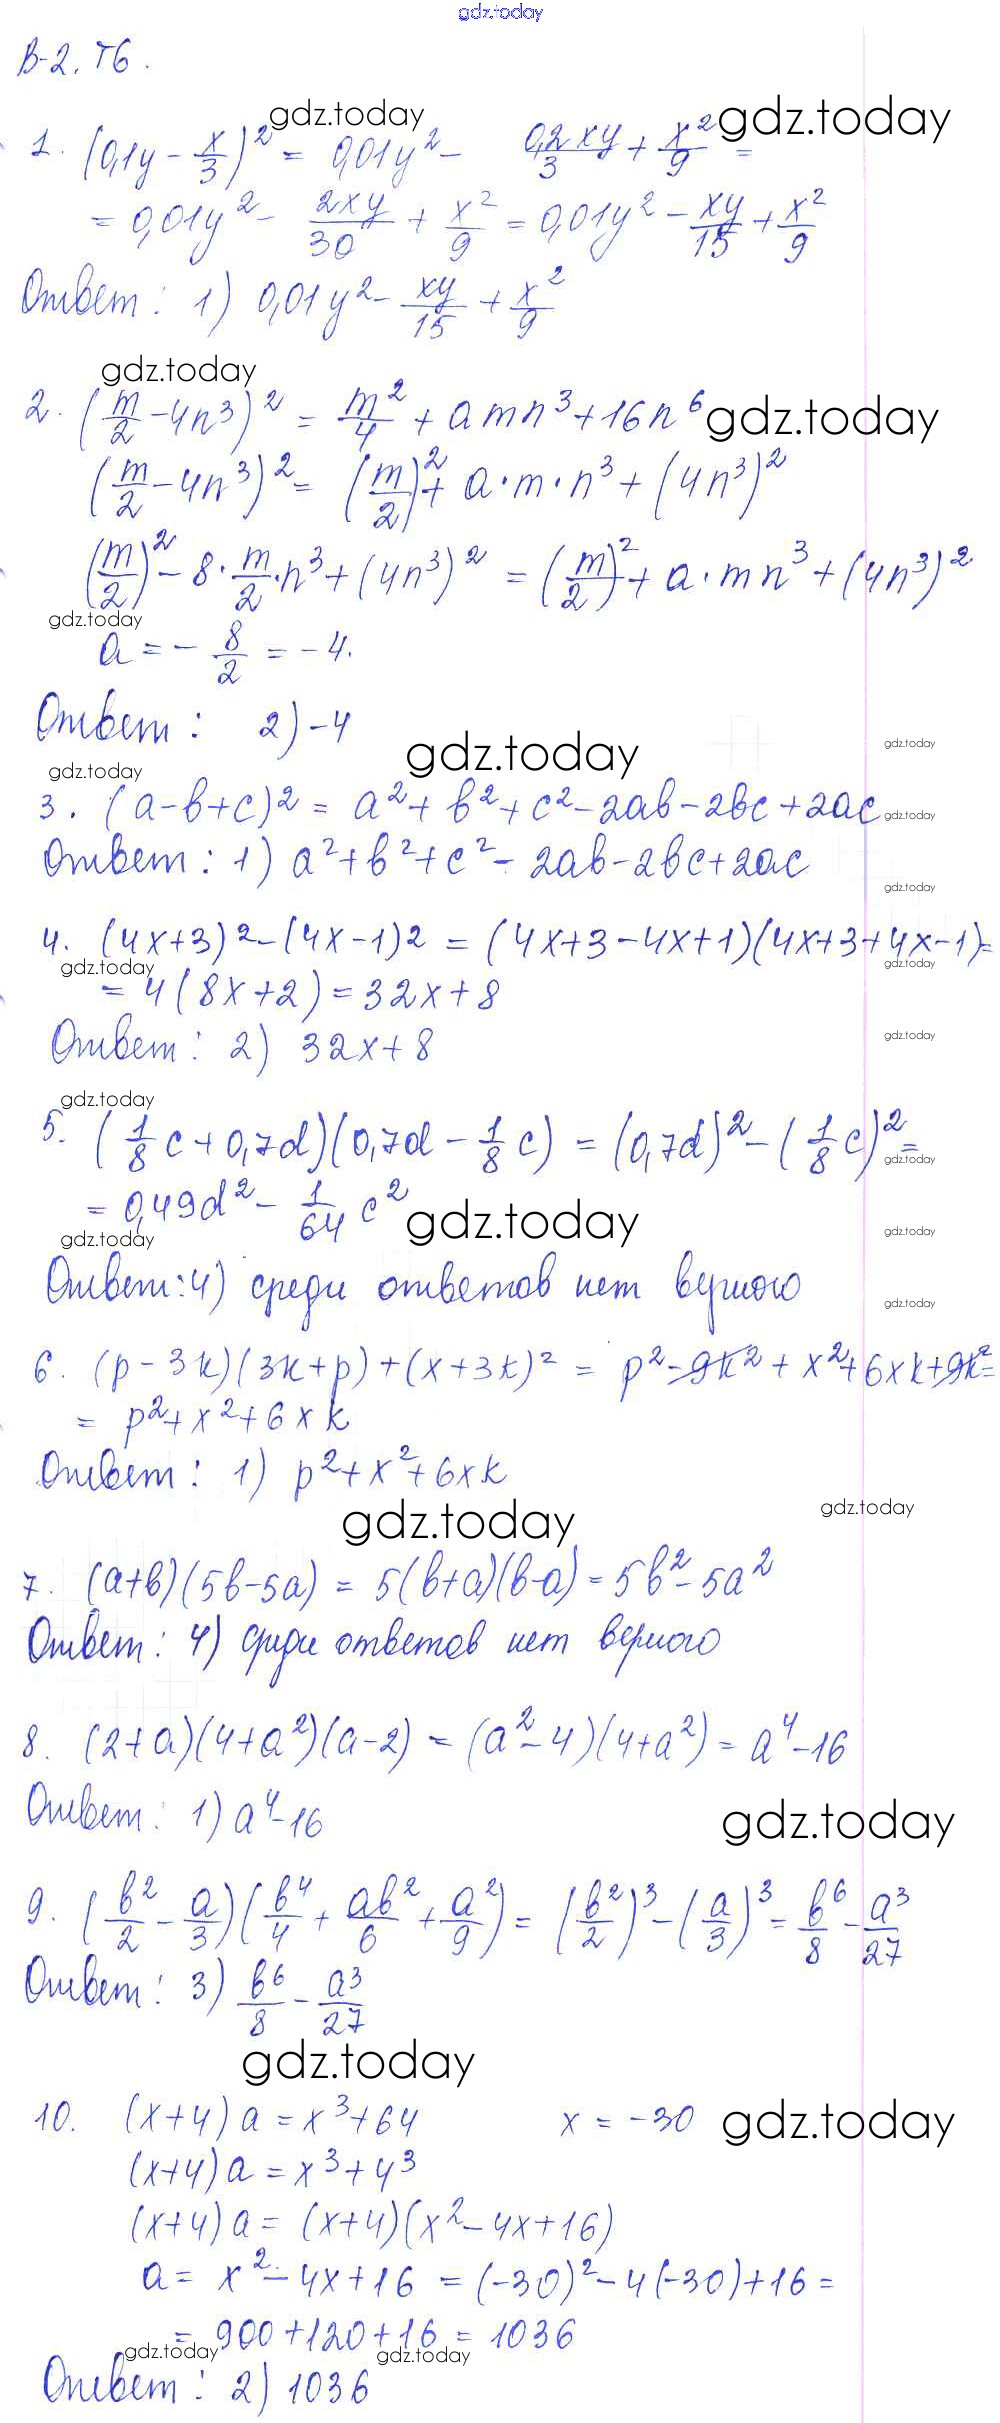 gdz.today
В-2. Т6.
gdz.today gdz.today
1. (0,1y - x/3)² = 0,01y² - 0,2xy/3 + x²/9 =
= 0,01y² - 2xy/30 + x²/9 = 0,01y² - xy/15 + x²/9
Ответ: 1) 0,01y² - xy/15 + x²/9
gdz.today
2. (m/2 - 4n³)² = m²/4 + amn³ + 16n⁶ gdz.today
(m/2 - 4n³)² = (m/2)² + a·m·n³ + (4n³)²
(m/2)² - 8·m/2·n³ + (4n³)² = (m/2)² + a·mn³ + (4n³)²
gdz.today
a = - 8/2 = -4.
Ответ: 2) -4
gdz.today gdz.today
gdz.today
3. (a-b+c)² = a² + b² + c² - 2ab - 2bc + 2ac gdz.today
Ответ: 1) a² + b² + c² - 2ab - 2bc + 2ac
gdz.today
4. (4x+3)² - (4x-1)² = (4x+3-4x+1)(4x+3+4x-1) =
gdz.today gdz.today
= 4(8x+2) = 32x+8
Ответ: 2) 32x+8 gdz.today
gdz.today
5. (1/8 c + 0,7d)(0,7d - 1/8 c) = (0,7d)² - (1/8 c)² =
gdz.today
= 0,49d² - 1/64 c² gdz.today gdz.today
gdz.today
Ответ: 4) среди ответов нет верного gdz.today
6. (p-3k)(3k+p) + (x+3k)² = p² - 9k² + x² + 6xk + 9k² =
= p² + x² + 6xk
Ответ: 1) p² + x² + 6xk
gdz.today gdz.today
7. (a+b)(5b-5a) = 5(b+a)(b-a) = 5b² - 5a²
Ответ: 4) среди ответов нет верного
8. (2+a)(4+a²)(a-2) = (a²-4)(4+a²) = a⁴-16
Ответ: 1) a⁴-16 gdz.today
9. (b²/2 - a/3)(b⁴/4 + ab²/6 + a²/9) = (b²/2)³ - (a/3)³ = b⁶/8 - a³/27
Ответ: 3) b⁶/8 - a³/27
gdz.today
10. (x+4)a = x³+64 x = -30 gdz.today
(x+4)a = x³+4³
(x+4)a = (x+4)(x²-4x+16)
a = x²-4x+16 = (-30)²-4(-30)+16 =
= 900+120+16 = 1036
gdz.today gdz.today
Ответ: 2) 1036